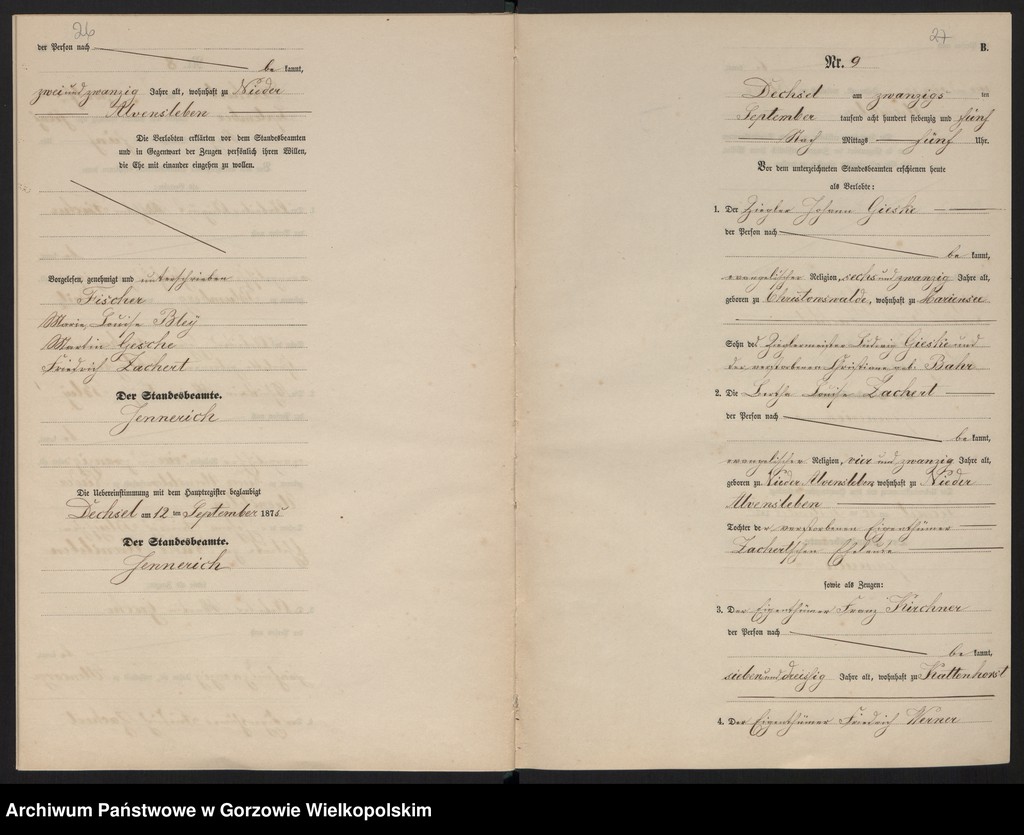 26
der Person nach
be kannt,
zwei und zwanzig Jahre alt, wohnhaft zu Nieder
Alvensleben
Die Verlobten erklärten vor dem Standesbeamten
und in Gegenwart der Zeugen persönlich ihren Willen,
die Ehe mit einander eingehen zu wollen.
Vorgelesen, genehmigt und unterschrieben
Fischer
Marie, Louise Bley
Martin Gesche
Friedrich Zachert
Der Standesbeamte.
Jennerich
Die Uebereinstimmung mit dem Hauptregister beglaubigt
Dechsel am 12 ten September 1875
Der Standesbeamte.
Jennerich
27
B.
Nr. 9
Dechsel am zwanzigs ten
September tausend acht hundert siebenzig und fünf
Nach Mittags fünf Uhr.
Vor dem unterzeichneten Standesbeamten erschienen heute
als Verlobte:
1. Der Ziegler Johann Gieske
der Person nach
be kannt,
evangelischer Religion, sechs und zwanzig Jahre alt,
geboren zu Christonswalde, wohnhaft zu Mariensee
Sohn des Zieglermeister Ludwig Gieske und
der verstorbenen Christiane geb: Bahr
2. Die Bertha Louise Zachert
der Person nach
be kannt,
evangelischer Religion, vier und zwanzig Jahre alt,
geboren zu Nieder Alvensleben wohnhaft zu Nieder
Alvensleben
Tochter der verstorbenen Eigenthümer
Zachert'schen Eheleute
sowie als Zeugen:
3. Der Eigenthümer Franz Kirchner
der Person nach
be kannt,
sieben und dreißig Jahre alt, wohnhaft zu Kattenhorst
4. Der Eigenthümer Friedrich Werner
Archiwum Państwowe w Gorzowie Wielkopolskim